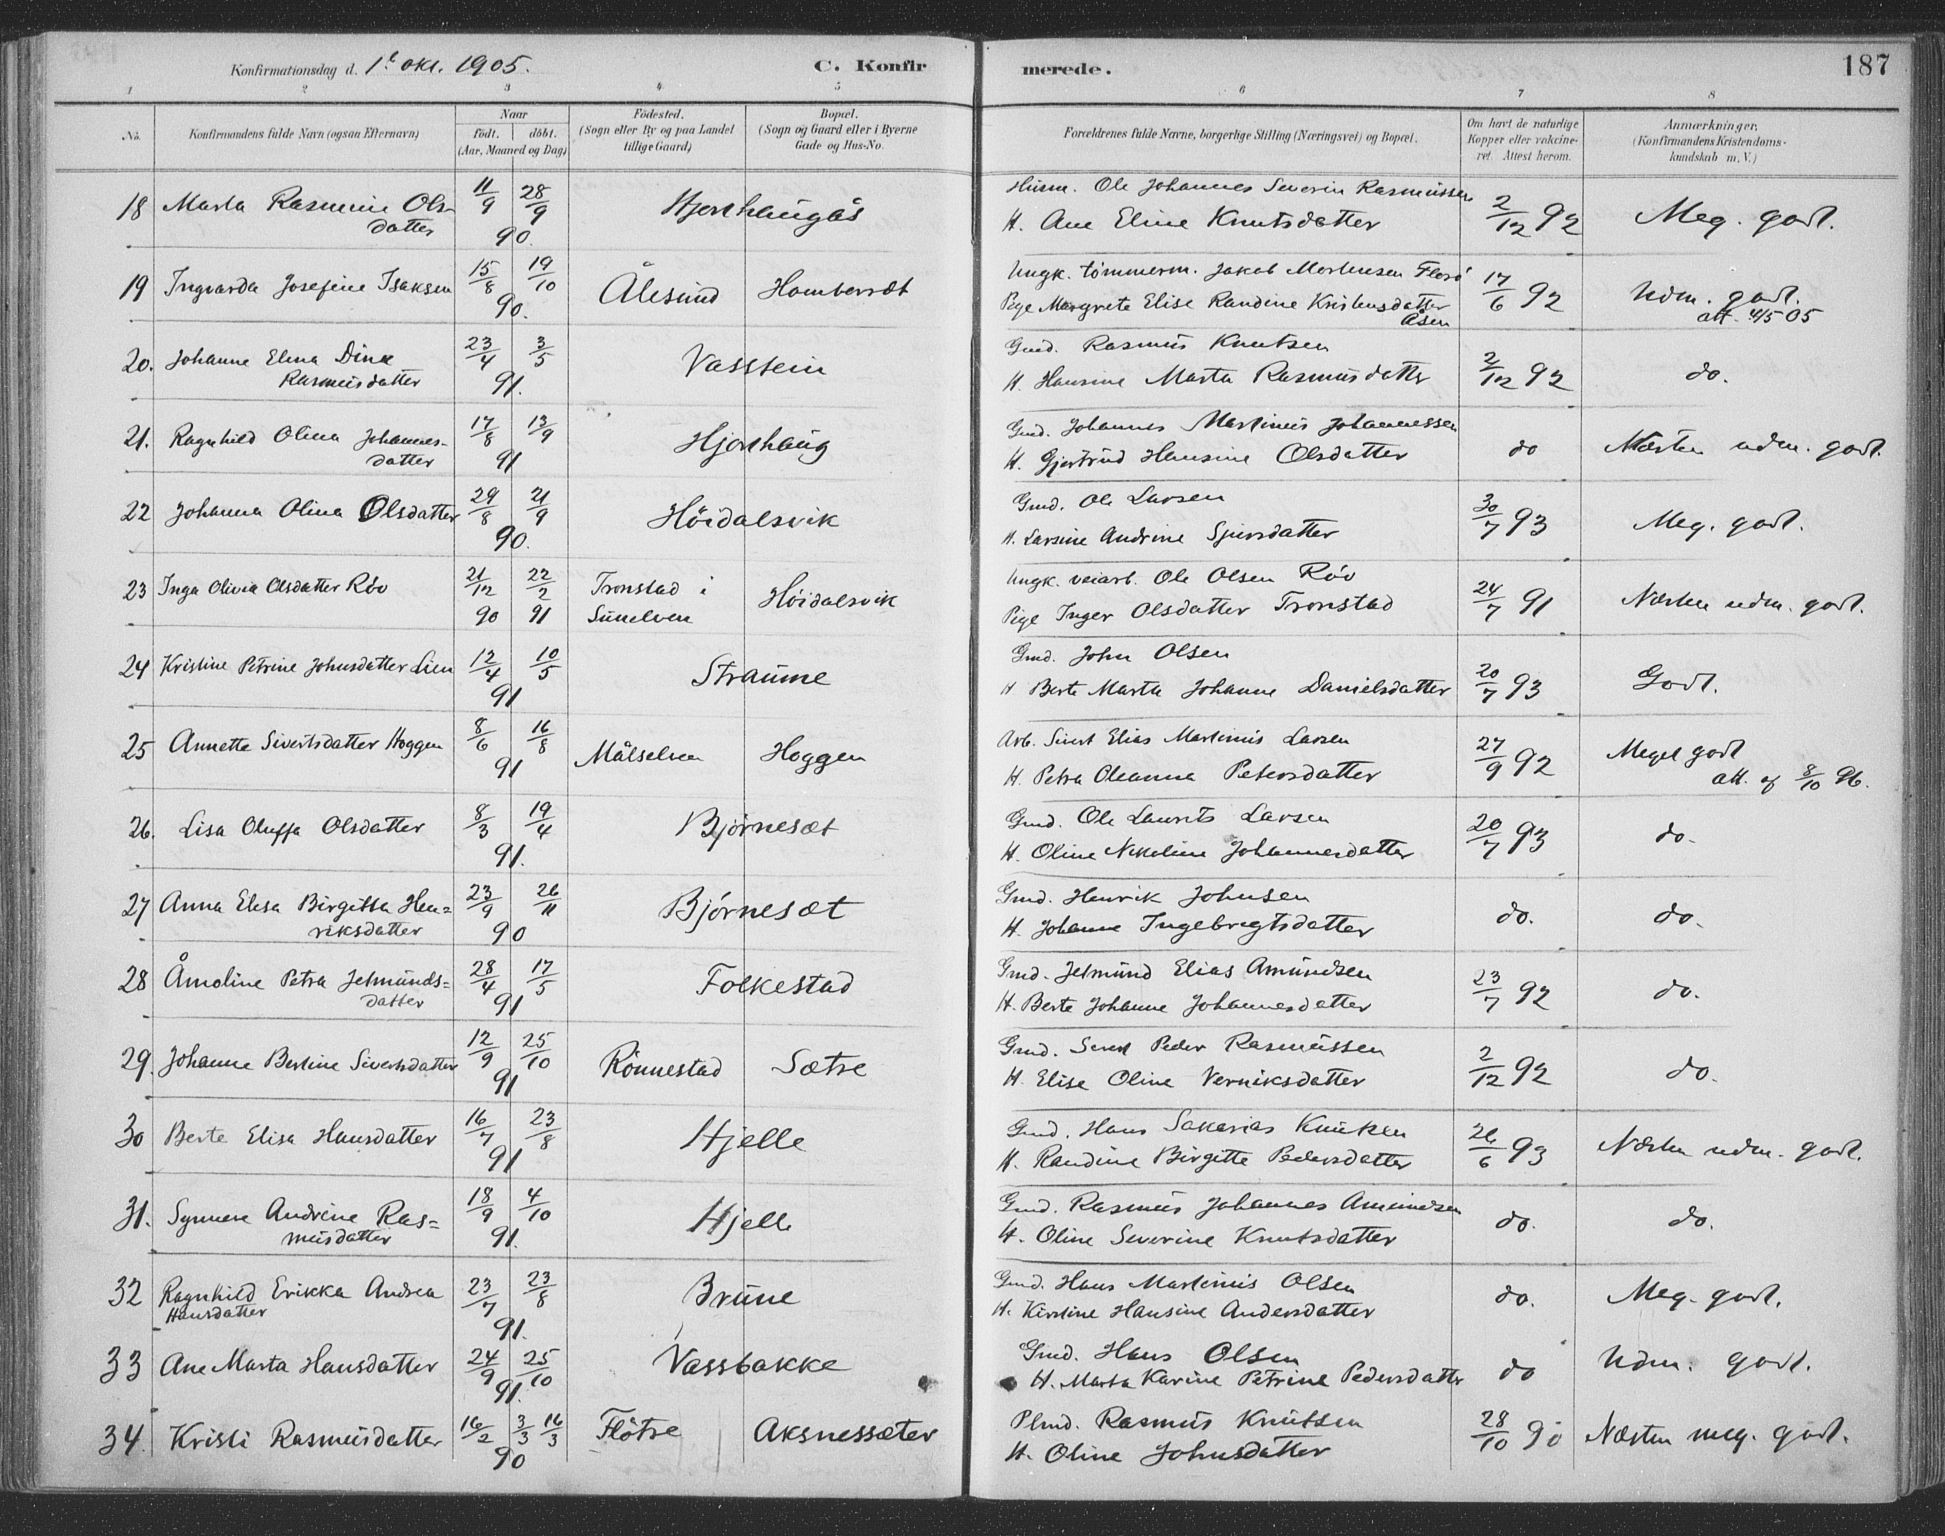 Konfirmationsdag d. 1ste okt. 1905. C. Konfir merede. 187
1 2 3 4 5 6 7 8
No. Konfirmandens fulde Navn (ogsaa Efternavn) Naar født. døbt. (Aar, Maaned og Dag) Fødested. (Sogn eller By og paa Landet tillige Gaard) Bopæl. (Sogn og Gaard eller i Byerne Gade og Hus-No. Forældrenes fulde Navne, borgerlige Stilling (Næringsvei) og Bopæl. Om havt de naturlige Kopper eller vakcineret. Attest herom. Anmærkninger. (Konfirmandens Kristendomskundskab m. V.)
18 Marta Rasmine Ols- 11/9 28/9 Hjorthaugås Husm. Ole Johannes Severin Rasmussen 2/12 92 Meg. godt.
datter 90. H. Ane Eline Knutsdatter
19 Ingvarda Josefine Isaksen 15/8 19/10 Ålesund Hamberset Ungk. tømmerm. Jakob Mortensen Florø 17/6 92 Udm. godt.
90. Pige Margrete Elise Randine Kristensdatter Åsen att. 4/5 05
20. Johanne Elena Dina 23/4 3/5 Vasstein Gmd. Rasmus Knutsen 2/12 92 do.
Rasmusdatter 91. H. Hansine Marta Rasmusdatter
21. Ragnhild Olina Johannes- 17/8 13/9 Hjorthaug Gmd. Johannes Martinus Johannessen do Næsten udm. godt.
datter 91 H. Gjertrud Hansine Olsdatter
22 Johanna Olina Olsdatter 29/8 21/9 Höidalsvik Gmd. Ole Larsen 30/7 93 Meg. godt.
90. H. Larsine Andrine Sjursdatter
23 Inga Olivia Olsdatter Röv 21/12 22/2 Tronstad i Höidalsvik Ungk. veiarb. Ole Olsen Röv 24/7 91 Næsten udm. godt.
90 91 Sunelven Pige Inger Olsdatter Tronstad
24 Kristine Petrine Johnsdatter Lien 12/4 10/5 Straume Gmd. John Olsen 20/7 93 Godt.
91 H Berte Marta Johanne Danielsdatter
25 Annette Sivertsdatter Hoggen 8/6 16/8 Målselven Hoggen Arb. Sivert Elias Martinus Larsen 27/9 92 Meget godt
91 H. Petra Oleanna Petersdatter att. af 8/10 96.
26. Lisa Oluffa Olsdatter 8/3 19/4 Bjørnesæt Gmd. Ole Laurits Larsen 20/7 93 do.
91. H. Oline Nikoline Johannesdatter
27 Anna Elisa Birgitta Hen= 23/9 26/11 Bjørnesæt Gmd. Henrik Johnsen do. do.
riksdatter 90 H. Johanne Ingebrigtsdatter
28 Åmoline Petra Jetmunds= 28/4 17/5 Folkestad Gmd. Jetmund Elias Amundsen 23/7 92 do.
datter 91 H. Berte Johanne Johannesdatter
29. Johanne Bertine Sivertsdatter 12/9 25/10 Rönnestad Sætre Gmd. Sivert Peder Rasmussen 2/12 92 do.
91 H. Elise Oline Verniksdatter
30 Berte Elisa Hansdatter 16/7 23/8 Hjelle Gmd. Hans Sakarias Knutsen 26/6 93 Næsten udm. godt.
91 H. Randine Birgitte Pedersdatter
31. Synnøve Andrine Ras= 18/9 4/10 Hjelle Gmd. Rasmus Johannes Amundsen do. do.
musdatter 91. H. Oline Severine Knutsdatter
32 Ragnhild Erikka Andrea 23/7 23/8 Brune Gmd. Hans Martinus Olsen do. Meg. godt.
Hansdatter 91. H. Kirstine Hansine Andersdatter
33 Ane Marta Hansdatter 24/9 25/10 Vassbakke Gmd. Hans Olsen do Udm. godt.
91. H. Marta Karine Petrine Pedersdatter
34. Kristi Rasmusdatter 16/2 3/3 16/3 Flötre Aksnessæter Plmd. Rasmus Knutsen 28/10 90 Næsten meg. godt.
90 H. Oline Johnsdatter